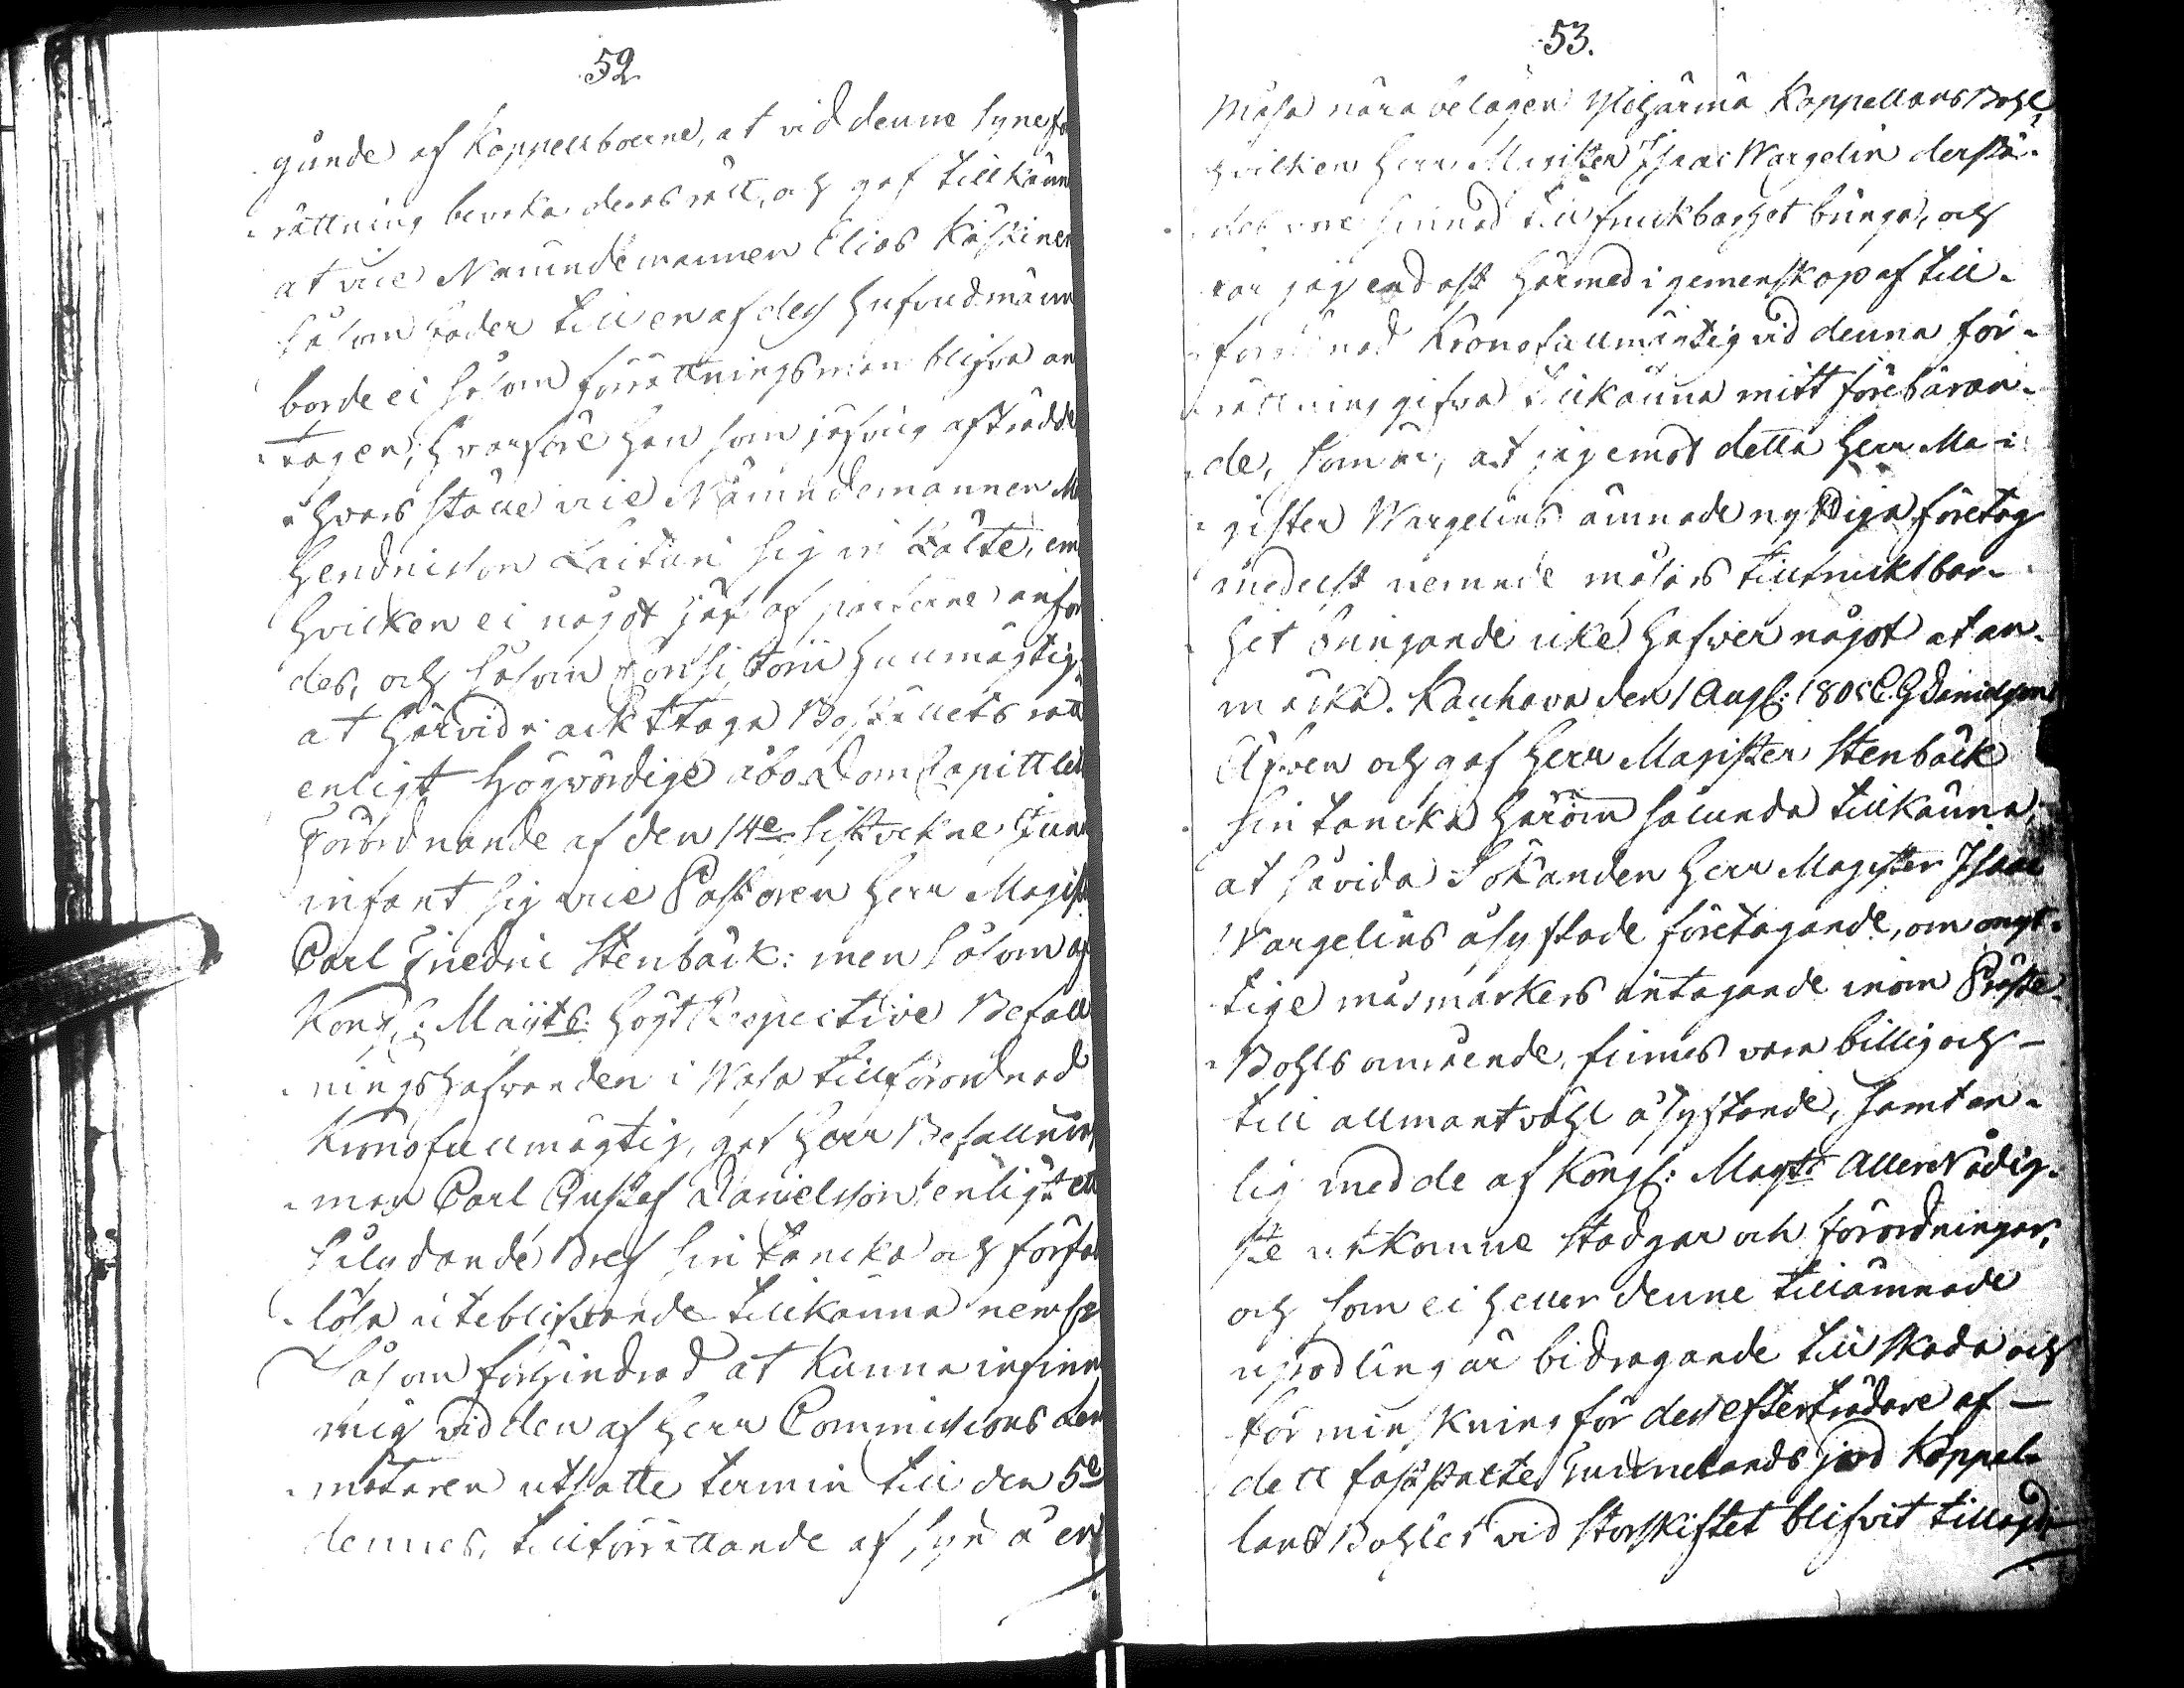 52
gände af Kappellboerne, at vid denne Synefö
rättning bevaka deras rätt, och gaf tillkänn
at vice Nämndemannen Elias Kåskinen
såsom Fader till en af dess Hufvudmänn
borde ei såsom förrättningsman blifva an
tagen; Hvarföre han som jäfvig afträdde
i hvars ställe vice Nämndemannen M
Hendricsson Laituri sig in stälte, em
Hvilken ei något jäf af parterne anför
des, och såsom Consistorii Fullmägtig
at Härvid i ackttaga Boställets rätt
enligt Högvördige åbo Dom Capittlet
Förordnande af den 14e sistvekne Junii
infant sig vice Pastoren Herr Magist
Carl Fredric Stenbäck: men såsom af
Kongl: Maijts Högt Respective Befall
ningshafvanden i Wasa tillförordnad
Kronofullmägtig, gaf Herr Befallnings
man Carl Gustaf Danielsson enligt ett
sålydande Bref sin tancka och förfal
lösa uteblifvande tillkänna nemln
Såsom förhindrad at kunna infinn
mig vid den af Herr Commissions Lan
mätaren utsatte termin till den 5e
dennes, till förrättande af Syn å en
53.
Måsa nära belägen Ylihärmä Kappellans Bohl,
hvilken Herr Magister Isaac Wargelin derstä
des vore sinnad till fruktbarhet bringa, och
får jag endast härmed i gemenskap af till
förordnad Kronofullmägtig vid denna för
rättning gifva tillkänna mitt förebäran
de, som är, at jag emot detta Herr Ma
gister Wargelins ämnade nyttiga företag
medelst nemnde måsas till fruktbar
het bringande icke hafver något at an
märka. Kauhava den 1 Augl: 180 C. G Danielsson
Äfven och gaf Herr Magister Stenbäck
sin tancka härom sålunda tillkänna,
at såvida Sökanden Herr Magister Isaac
Wargelins åsyftade företagande, om onyt
tige måsmarkers intagande inom Präste
Bohls område, finnes vara billig och
till allmänt vähl åsyftande, samt en
lig med de af Kongl: Mayts Allernådig
ste utkomne stadgar och förordningar,
och som ei heller denne tillämnade
upodling är bidragande till skada och
förminskning för dess efterträdare af
dett fastställte jord Kappel
lans Bohlet vid Storskiftet blifvit tillagd